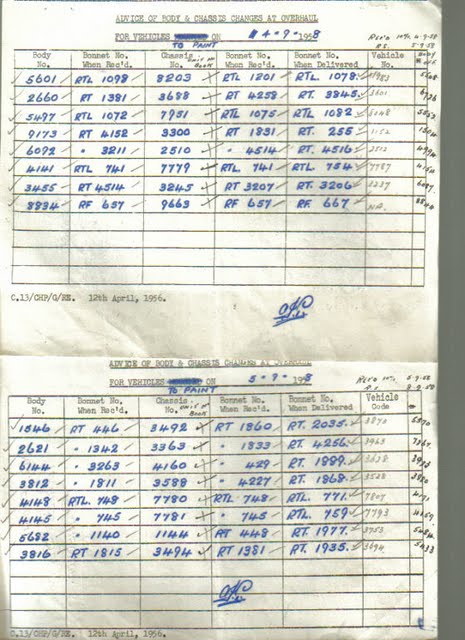 ADVICE OF BODY & CHASSIS CHANGES AT OVERHAUL
FOR VEHICLES ON 4-9-1958
TO PAINT
Body No. Bonnet No. When Rec'd. Chassis No. Unit No Book Bonnet No. When Rec'd. Bonnet No. When Delivered Vehicle No. Body
5601 RTL 1098 8203 RTL 1201 RTL 1078
2660 RT 1381 3688 RT 4258 RT. 3845
5497 RTL 1072 7951 RTL 1075 RTL 1082
9173 RT 4152 3300 RT 1831 RT. 255
6092 " 3211 2510 " 4514 RT. 4516 2512
4141 RTL 741 7779 RTL 741 RTL 754 7787
3455 RT 4514 3245 RT 3207 RT. 3206 2237
8834 RF 657 9663 RF 657 RF 667 NA.
C.13/CHP/G/RE. 12th April, 1956.
ADVICE OF BODY & CHASSIS CHANGES AT OVERHAUL
FOR VEHICLES ON 5-9-1958
TO PAINT
Body No. Bonnet No. When Rec'd. Chassis No. Unit No Book Bonnet No. When Rec'd. Bonnet No. When Delivered Vehicle Code
1846 RT 446 3492 RT 1860 RT. 2035.
2621 " 1342 3363 " 1833 RT. 4256
6144 " 3263 4160 " 429 RT. 1889.
3812 " 1811 3588 " 4227 RT. 1868. 3528
4148 RTL. 748 7780 RTL 748 RTL. 771. 7807
4145 " 745 7781 " 745 RTL. 759 7793
5682 " 1140 1144 RT 448 RT. 1977.
3816 RT 1815 3494 RT 1381 RT. 1935. 3694
C.13/CHP/G/RE. 12th April, 1956.